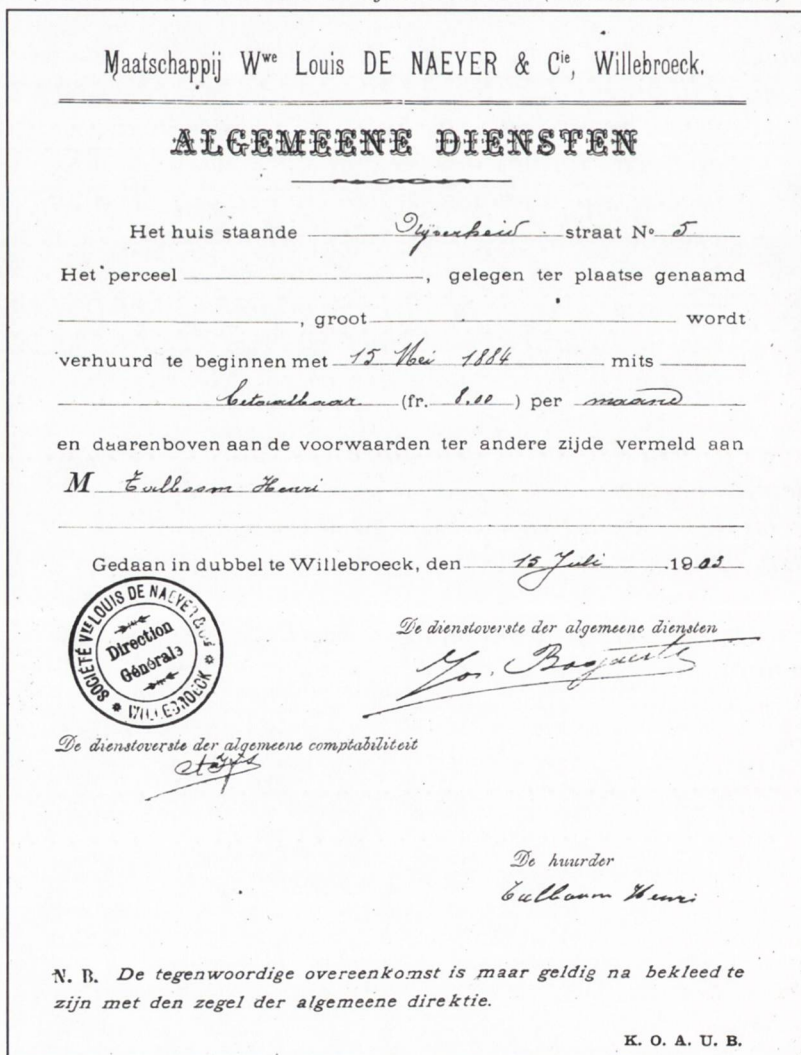 Maatschappij Wwe Louis DE NAEYER & Cie, Willebroeck.
ALGEMEENE DIENSTEN
Het huis staande Nijverheid straat No 5
Het perceel , gelegen ter plaatse genaamd
, groot wordt
verhuurd te beginnen met 15 Mei 1884 mits
betaalbaar (fr. 8.00 ) per maand
en daarenboven aan de voorwaarden ter andere zijde vermeld aan
M Henri
Gedaan in dubbel te Willebroeck, den 15 Juli 1903
SOCIÉTÉ Vve LOUIS DE NAEYER & Cie
Direction
Générale
WILLEBROECK
De dienstoverste der algemeene diensten
Jos.
De dienstoverste der algemeene comptabiliteit
De huurder
Henri
N. B. De tegenwoordige overeenkomst is maar geldig na bekleed te
zijn met den zegel der algemeene direktie.
K. O. A. U. B.